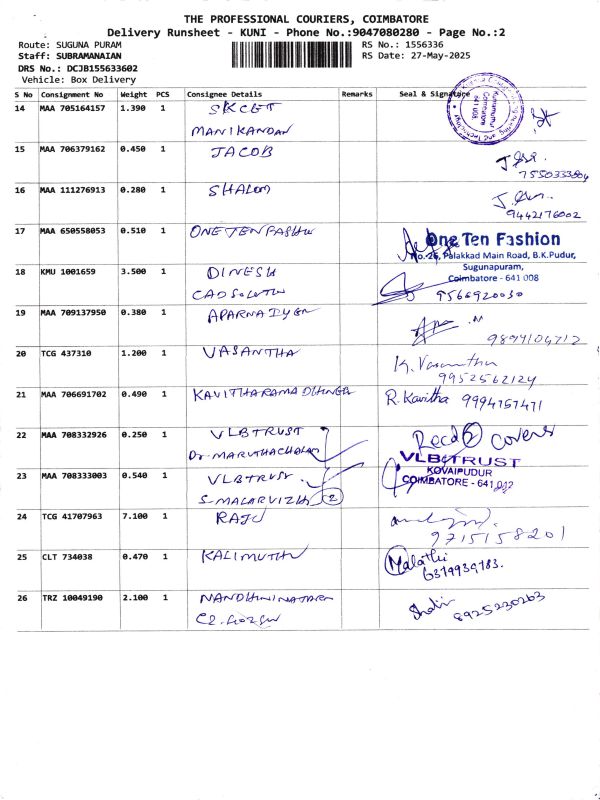 THE PROFESSIONAL COURIERS, COIMBATORE
Delivery Runsheet - KUNI - Phone No.:9047080280 - Page No.:2
Route: SUGUNA PURAM
RS No.: 1556336
Staff: SUBRAMANAIAN
RS Date: 27-May-2025
DRS No.: DCJB155633602
Vehicle: Box Delivery
S No Consignment No Weight PCS Consignee Details Remarks Seal & Signature
14 MAA 705164157 1.390 1 SKCET
MANIKANDAN
15 MAA 706379162 0.450 1 JACOB
7550333804
16 MAA 111276913 0.280 1 SHALOM
9442176002
17 MAA 650558053 0.510 1 ONE TEN FASHION
One Ten Fashion
No.-26, Palakkad Main Road, B.K.Pudur,
Sugunapuram,
Coimbatore - 641 008
18 KMU 1001659 3.500 1 DINESH
CADSOLUTION
9566920030
19 MAA 709137950 0.380 1 APARNA IYER
9894104712
20 TCG 437310 1.200 1 VASANTHA
K. Vasantha
9952562124
21 MAA 706691702 0.490 1 KAVITHARAMA
R. Kavitha 9994757471
22 MAA 708332926 0.250 1 VLB TRUST
Dr MARUTHACHALAM
Recd 2 covers
VLB TRUST
KOVAIPUDUR
COIMBATORE - 641 042
23 MAA 708333003 0.540 1 VLB TRUST.
S-MALARVIZHI 2
24 TCG 41707963 7.100 1 RAJU
9715158201
25 CLT 734038 0.470 1 KALIMUTHU
Malathi
6374939183.
26 TRZ 10049190 2.100 1 NANDHINI
8925230263